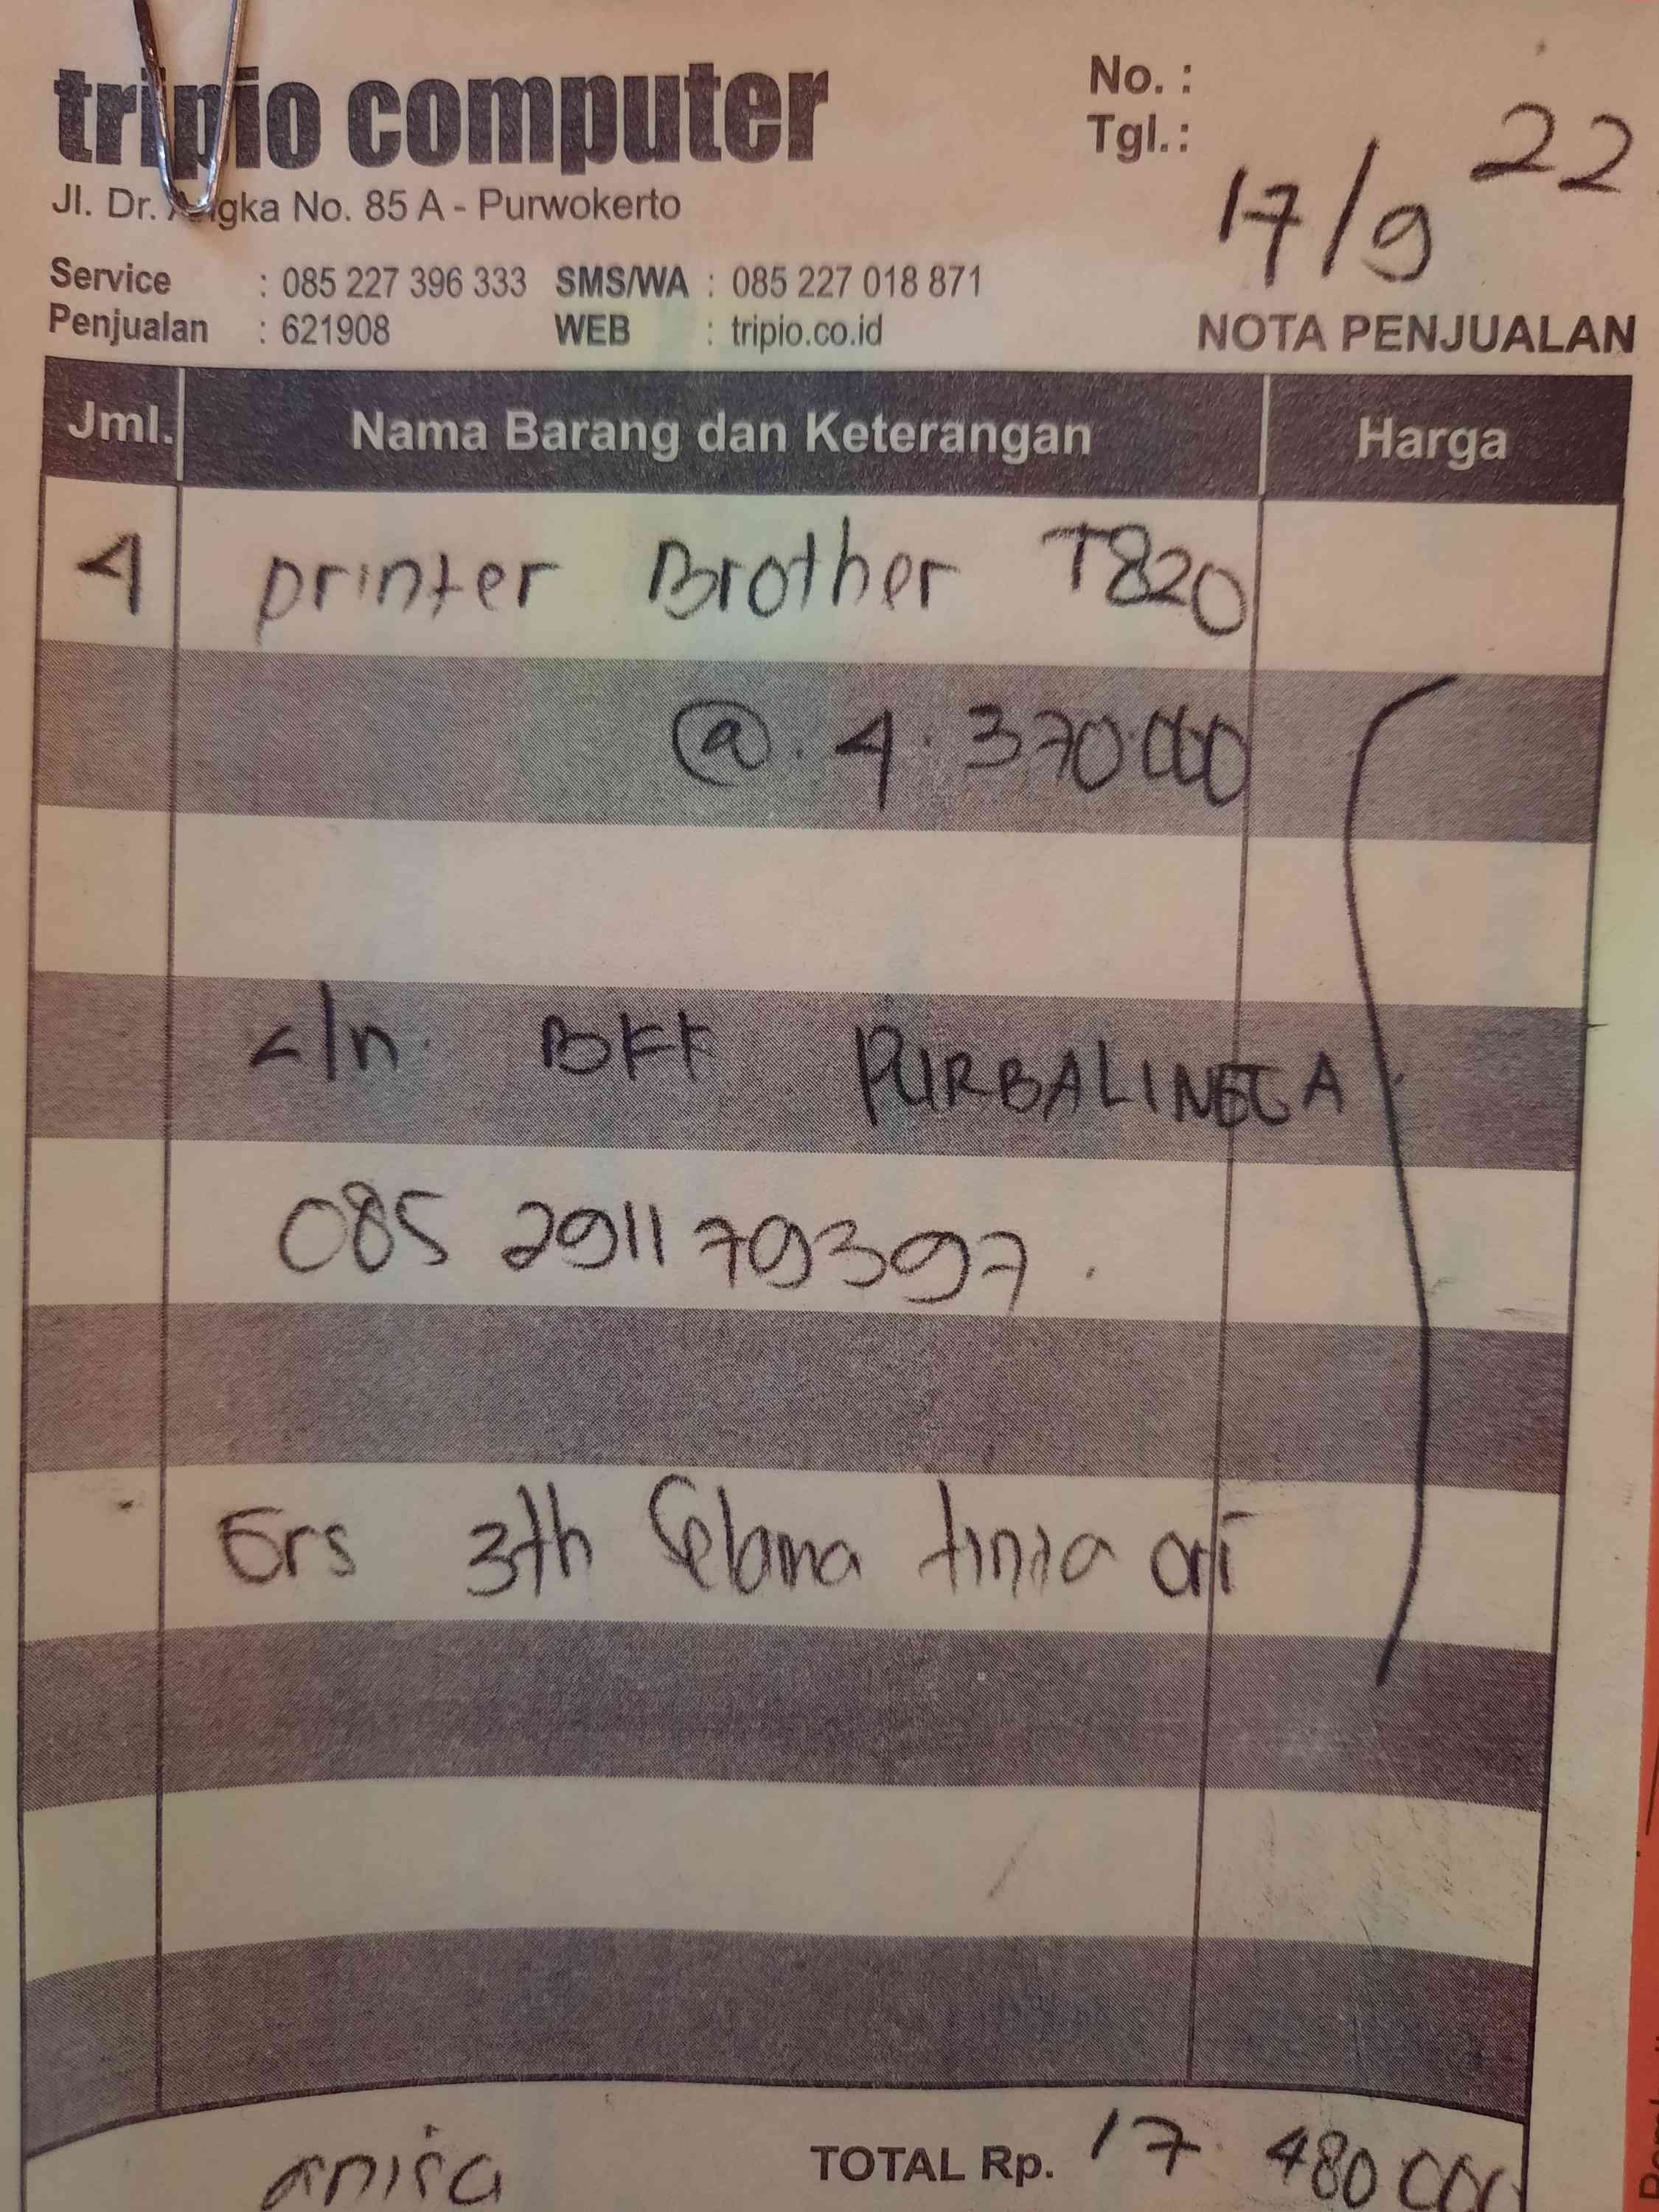 tripio computer
Jl. Dr. Angka No. 85 A - Purwokerto
No. :
Tgl. : 17/9 22
Service : 085 227 396 333 SMS/WA : 085 227 018 871
Penjualan : 621908 WEB : tripio.co.id
NOTA PENJUALAN
Jml. Nama Barang dan Keterangan Harga
4 printer Brother T820
@. 4.370.000
c/n BFF PURBALINGGA
085 291179397.
Grs 3th Selama tinta ori
anisa
TOTAL Rp. 17.480 000